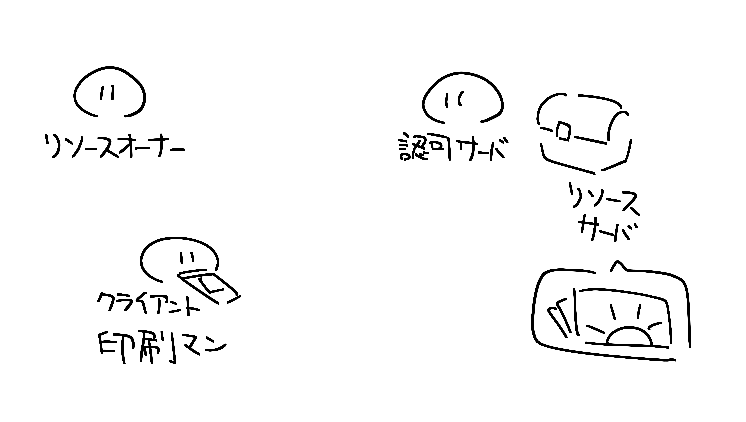 リソースオーナー
認可サーバ
リソース
サーバ
クライアント
印刷マン